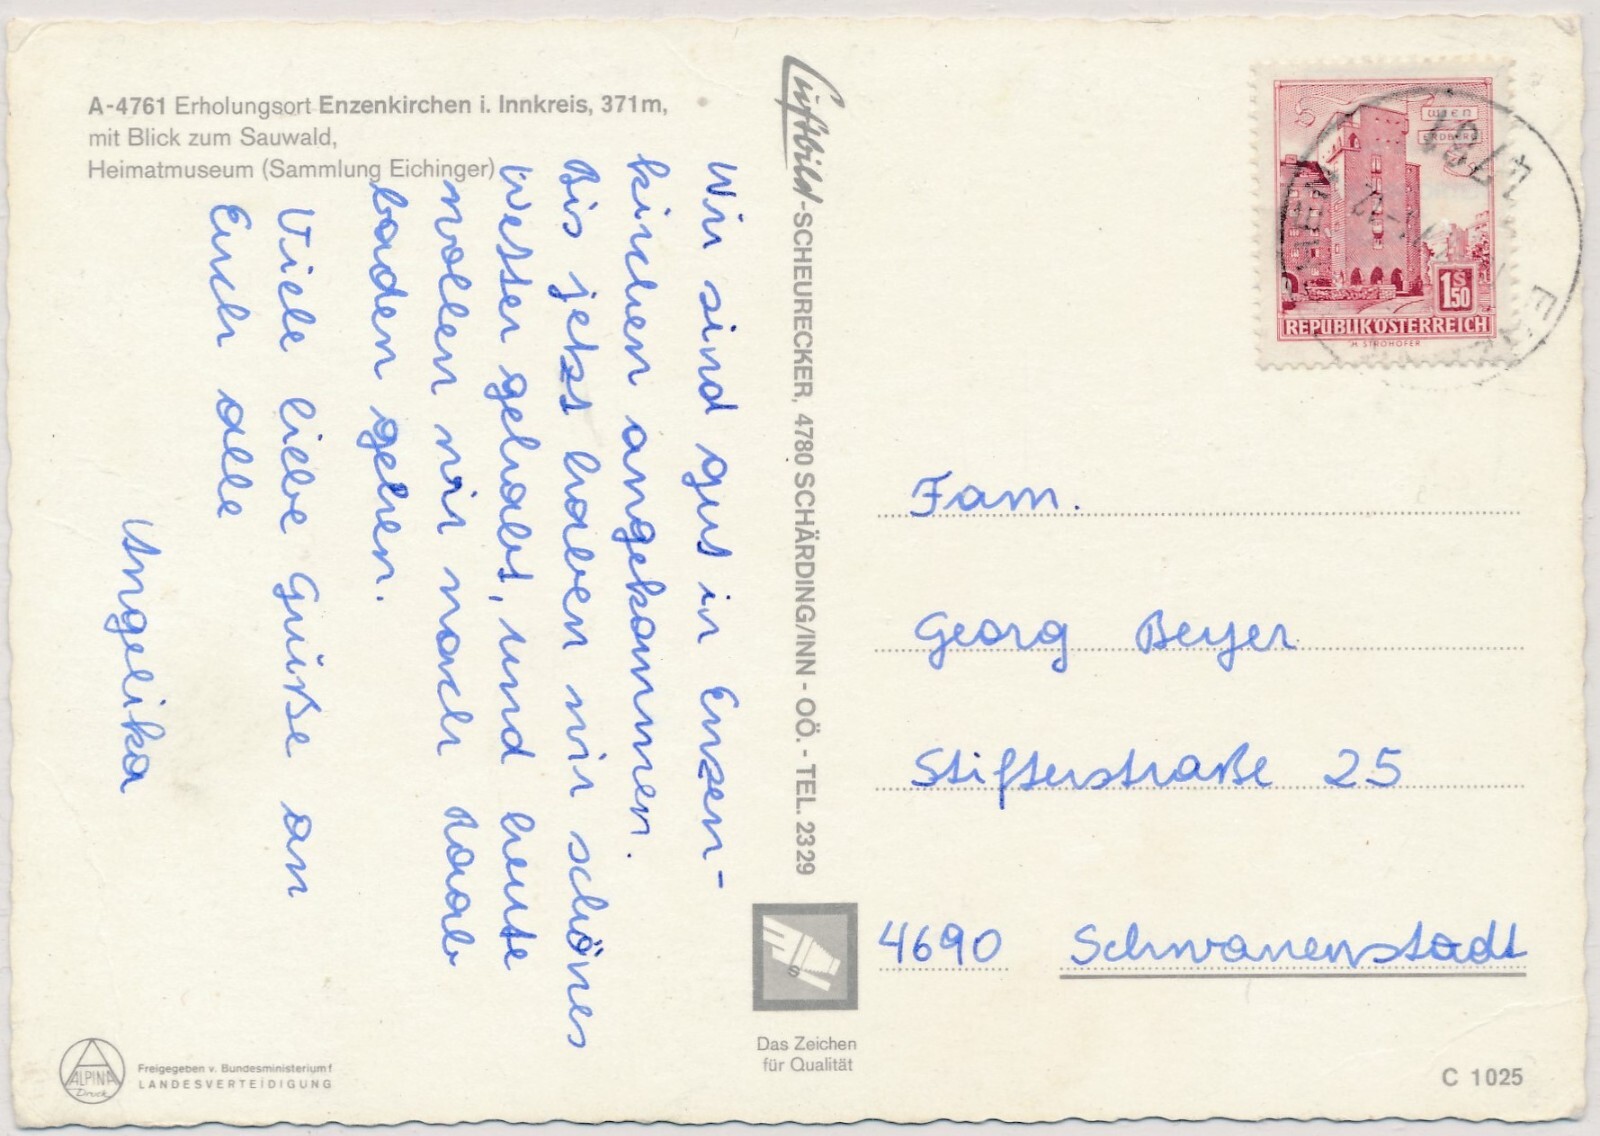 A-4761 Erholungsort Enzenkirchen i. Innkreis, 371m,
mit Blick zum Sauwald,
Heimatmuseum (Sammlung Eichinger)
Wir sind gut in Enzen-
kirchen angekommen.
Bis jetzt haben wir schönes
Wetter gehabt, und heute
wollen wir nach Raab
baden gehen.
Viele liebe Grüße an
Euch alle
Angelika
Luftbild-SCHEURECKER, 4780 SCHÄRDING/INN - OÖ. - TEL. 2329
Das Zeichen
für Qualität
WIEN
ERDBERG
1 S 50
REPUBLIK ÖSTERREICH
H. STROHOFER
4761
Fam.
Georg Beyer
Stifterstraße 25
4690 Schwanenstadt
ALPINA
Druck
Freigegeben v. Bundesministerium f
LANDESVERTEIDIGUNG
C 1025